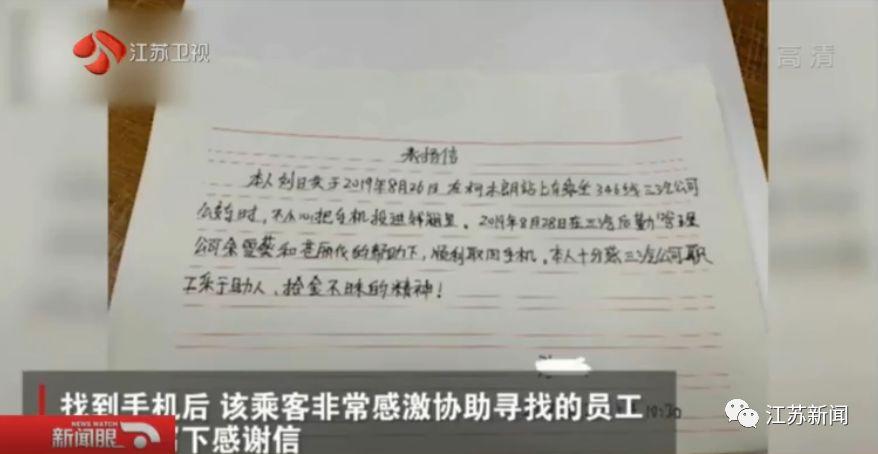 江苏卫视
高清
表扬信
本人刘日 于2019年8月26日在柯木朗站上车乘坐346线三汽公司
公交车时，不小心把手机投进钱箱里。2019年8月28日在三汽后勤管理
公司余雪葵和 丽代的帮助下，顺利取回手机。本人十分感 三汽公司职
工乐于助人、拾金不昧的精神！
10:30
找到手机后 该乘客非常感激协助寻找的员工
下感谢信
NEWS WATCH
新闻眼
江苏新闻